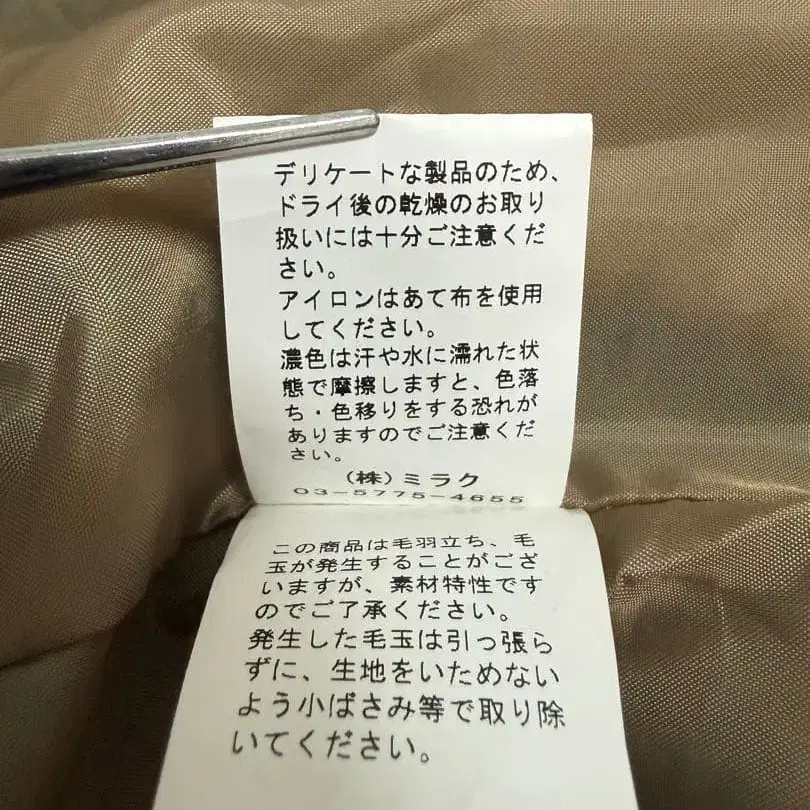 デリケートな製品のため、
ドライ後の乾燥のお取り
扱いには十分ご注意くだ
さい。
アイロンはあて布を使用
してください。
濃色は汗や水に濡れた状
態で摩擦しますと、色落
ち・色移りをする恐れが
ありますのでご注意くだ
さい。
(株)ミラク
03-5775-4655
この商品は毛羽立ち、毛
玉が発生することがござ
いますが、素材特性です
のでご了承ください。
発生した毛玉は引っ張ら
ずに、生地をいためない
よう小ばさみ等で取り除
いてください。